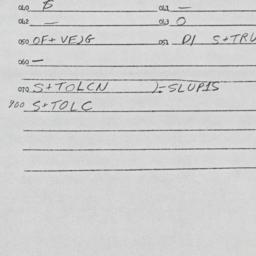 040 B 041 —
042 — 043 O
050 OF+VEJG 051 DI S+TRU
060 —
070 S+TOLCN )=SLUP1S
400 S+TOLC